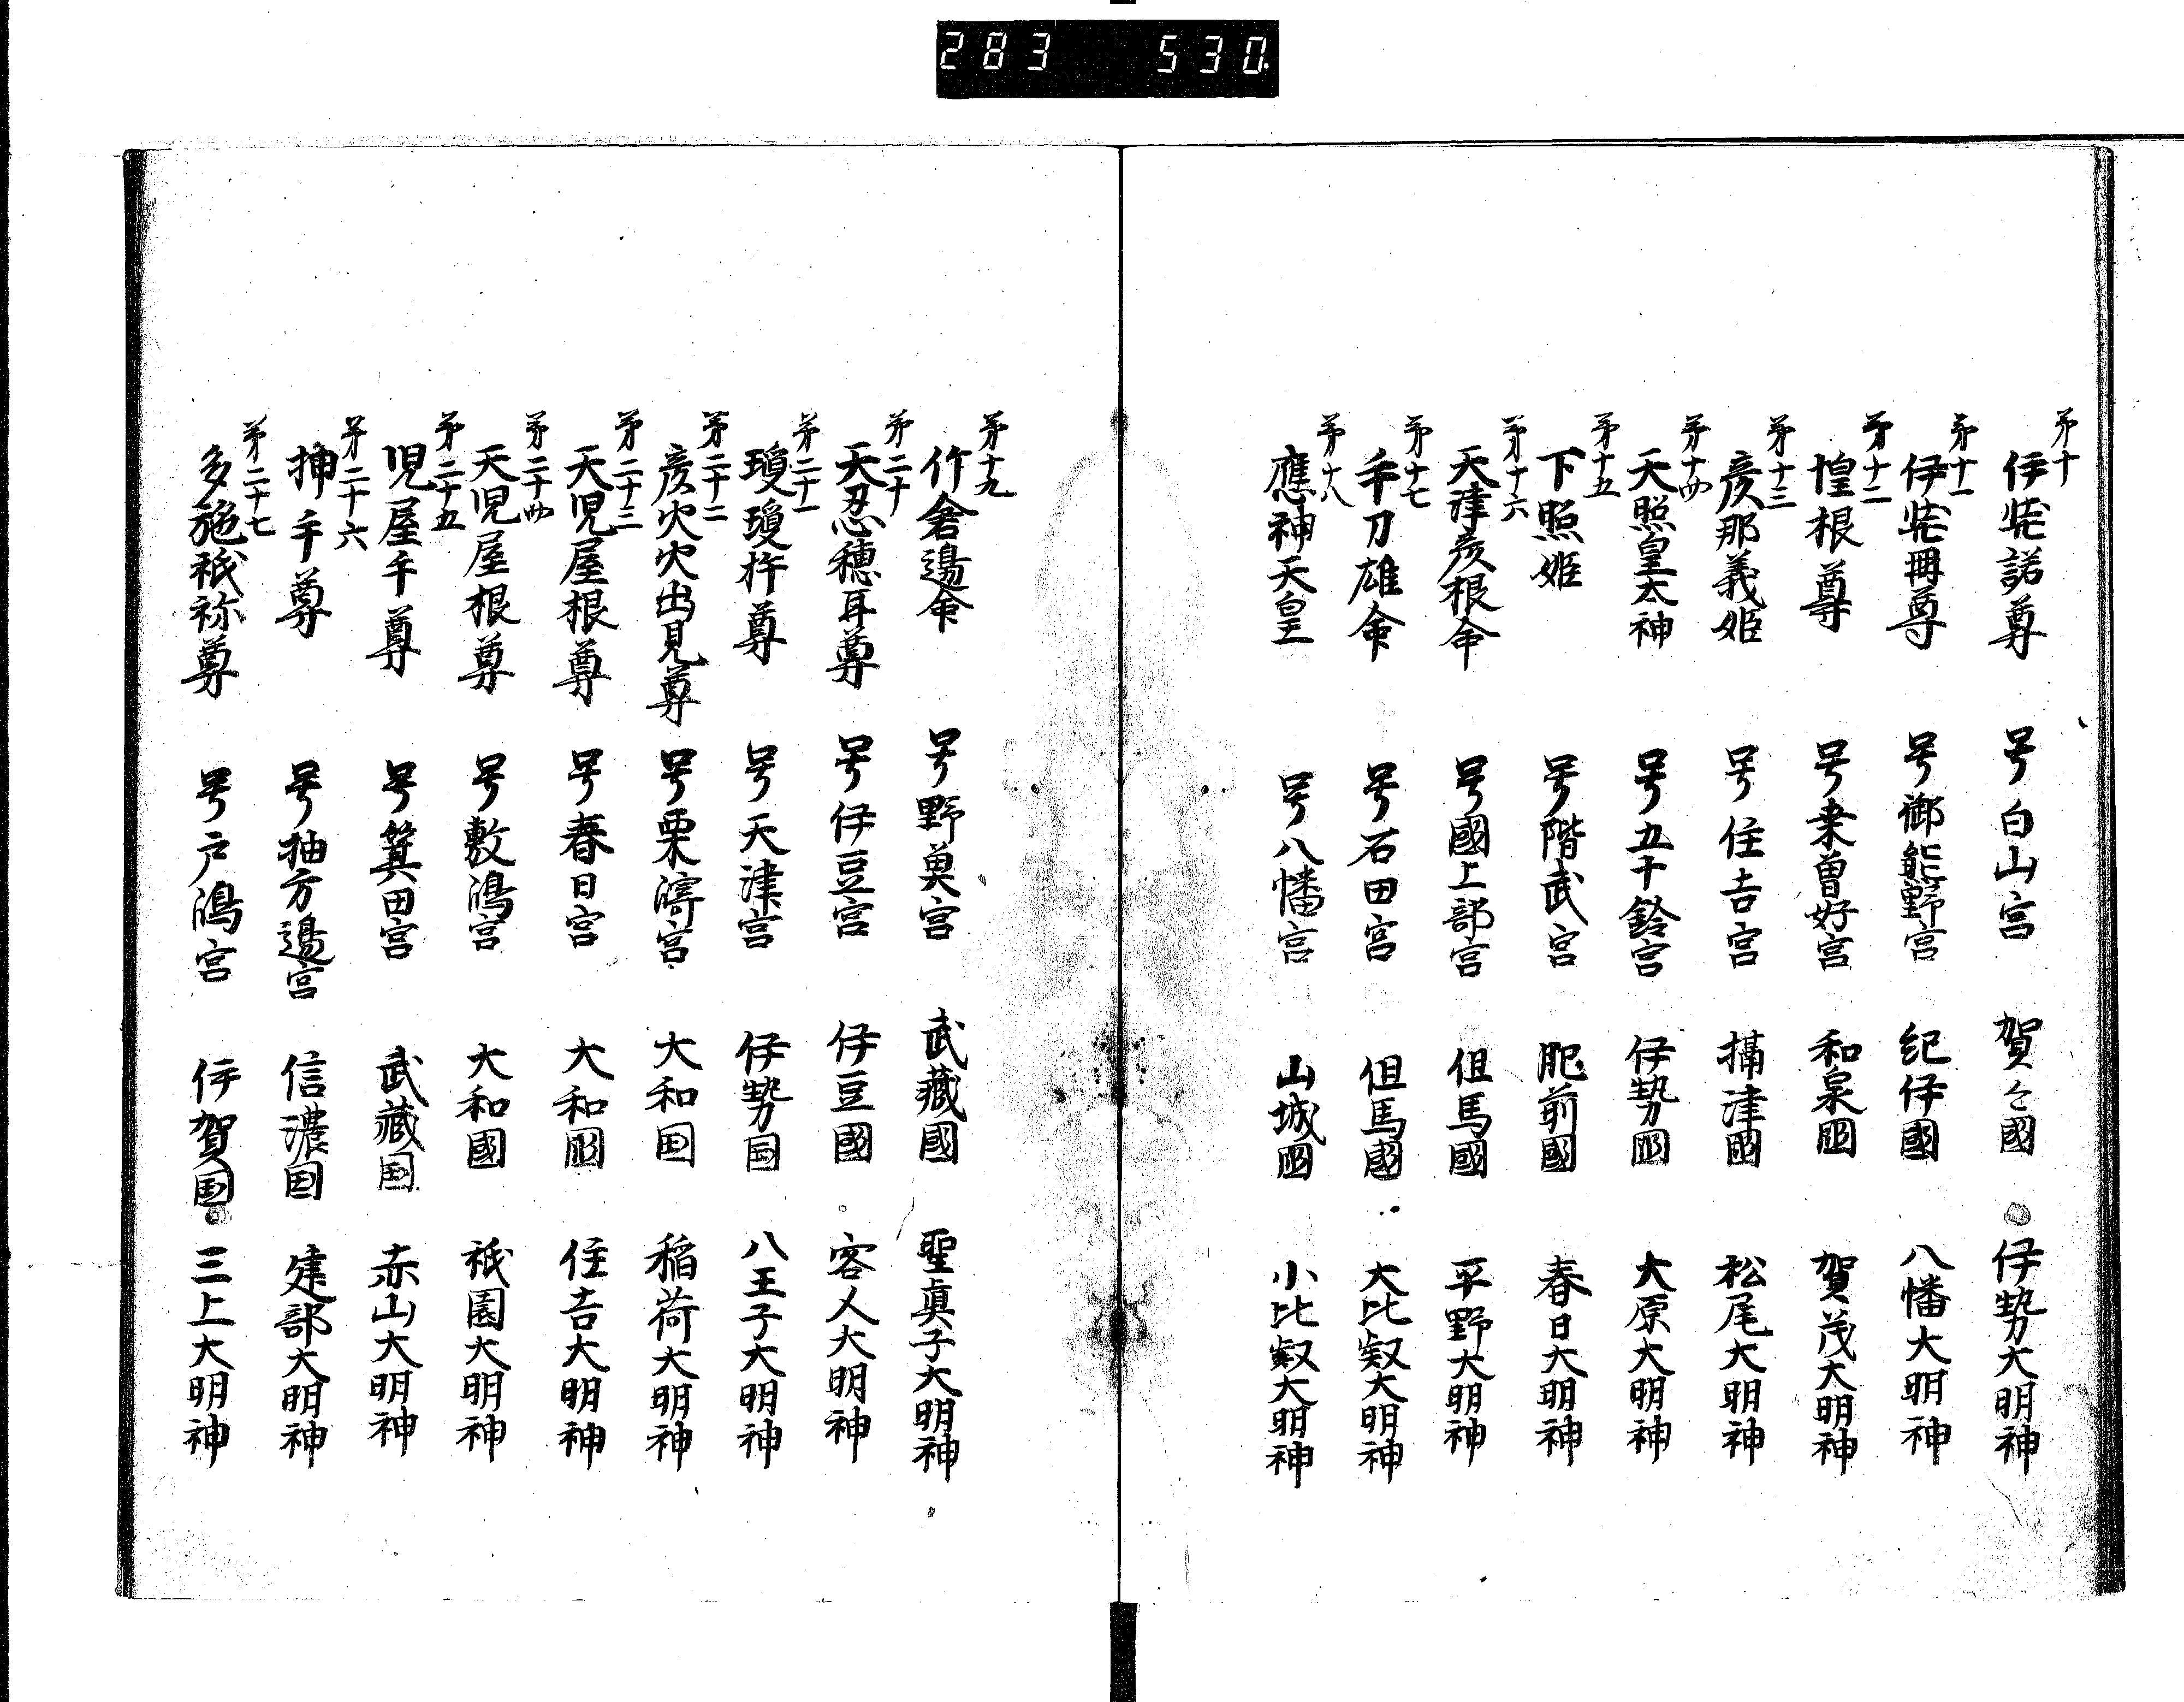 283 530
第十
伊弉諾尊 号白山宮 賀々國 伊勢大明神
第十一
伊弉冊尊 号御熊野宮 紀伊國 八幡大明神
第十二
惶根尊 号乗曽好宮 和泉国 賀茂大明神
第十三
彦那義姫 号住吉宮 攝津国 松尾大明神
第十四
天照皇太神 号五十鈴宮 伊勢国 大原大明神
第十五
下照姫 号階武宮 肥前國 春日大明神
第十六
天津彦根命 号國上部宮 但馬國 平野大明神
第十七
手刀雄命 号石田宮 但馬國 大比叡大明神
第十八
應神天皇 号八幡宮 山城国 小比叡大明神
第十九
作倉邊命 号野奠宮 武藏國 聖真子大明神
第二十
天忍穗耳尊 号伊豆宮 伊豆國 客人大明神
第二十一
瓊瓊杵尊 号天津宮 伊勢国 八王子大明神
第二十二
彦火火出見尊 号栗宮 大和国 稲荷大明神
第二十三
天児屋根尊 号春日宮 大和国 住吉大明神
第二十四
天児屋根尊 号敷鴻宮 大和國 祇園大明神
第二十五
児屋手尊 号箕田宮 武藏国 赤山大明神
第二十六
押手尊 号抽方邊宮 信濃国 建部大明神
第二十七
多施祇祢尊 号戸鴻宮 伊賀国 三上大明神